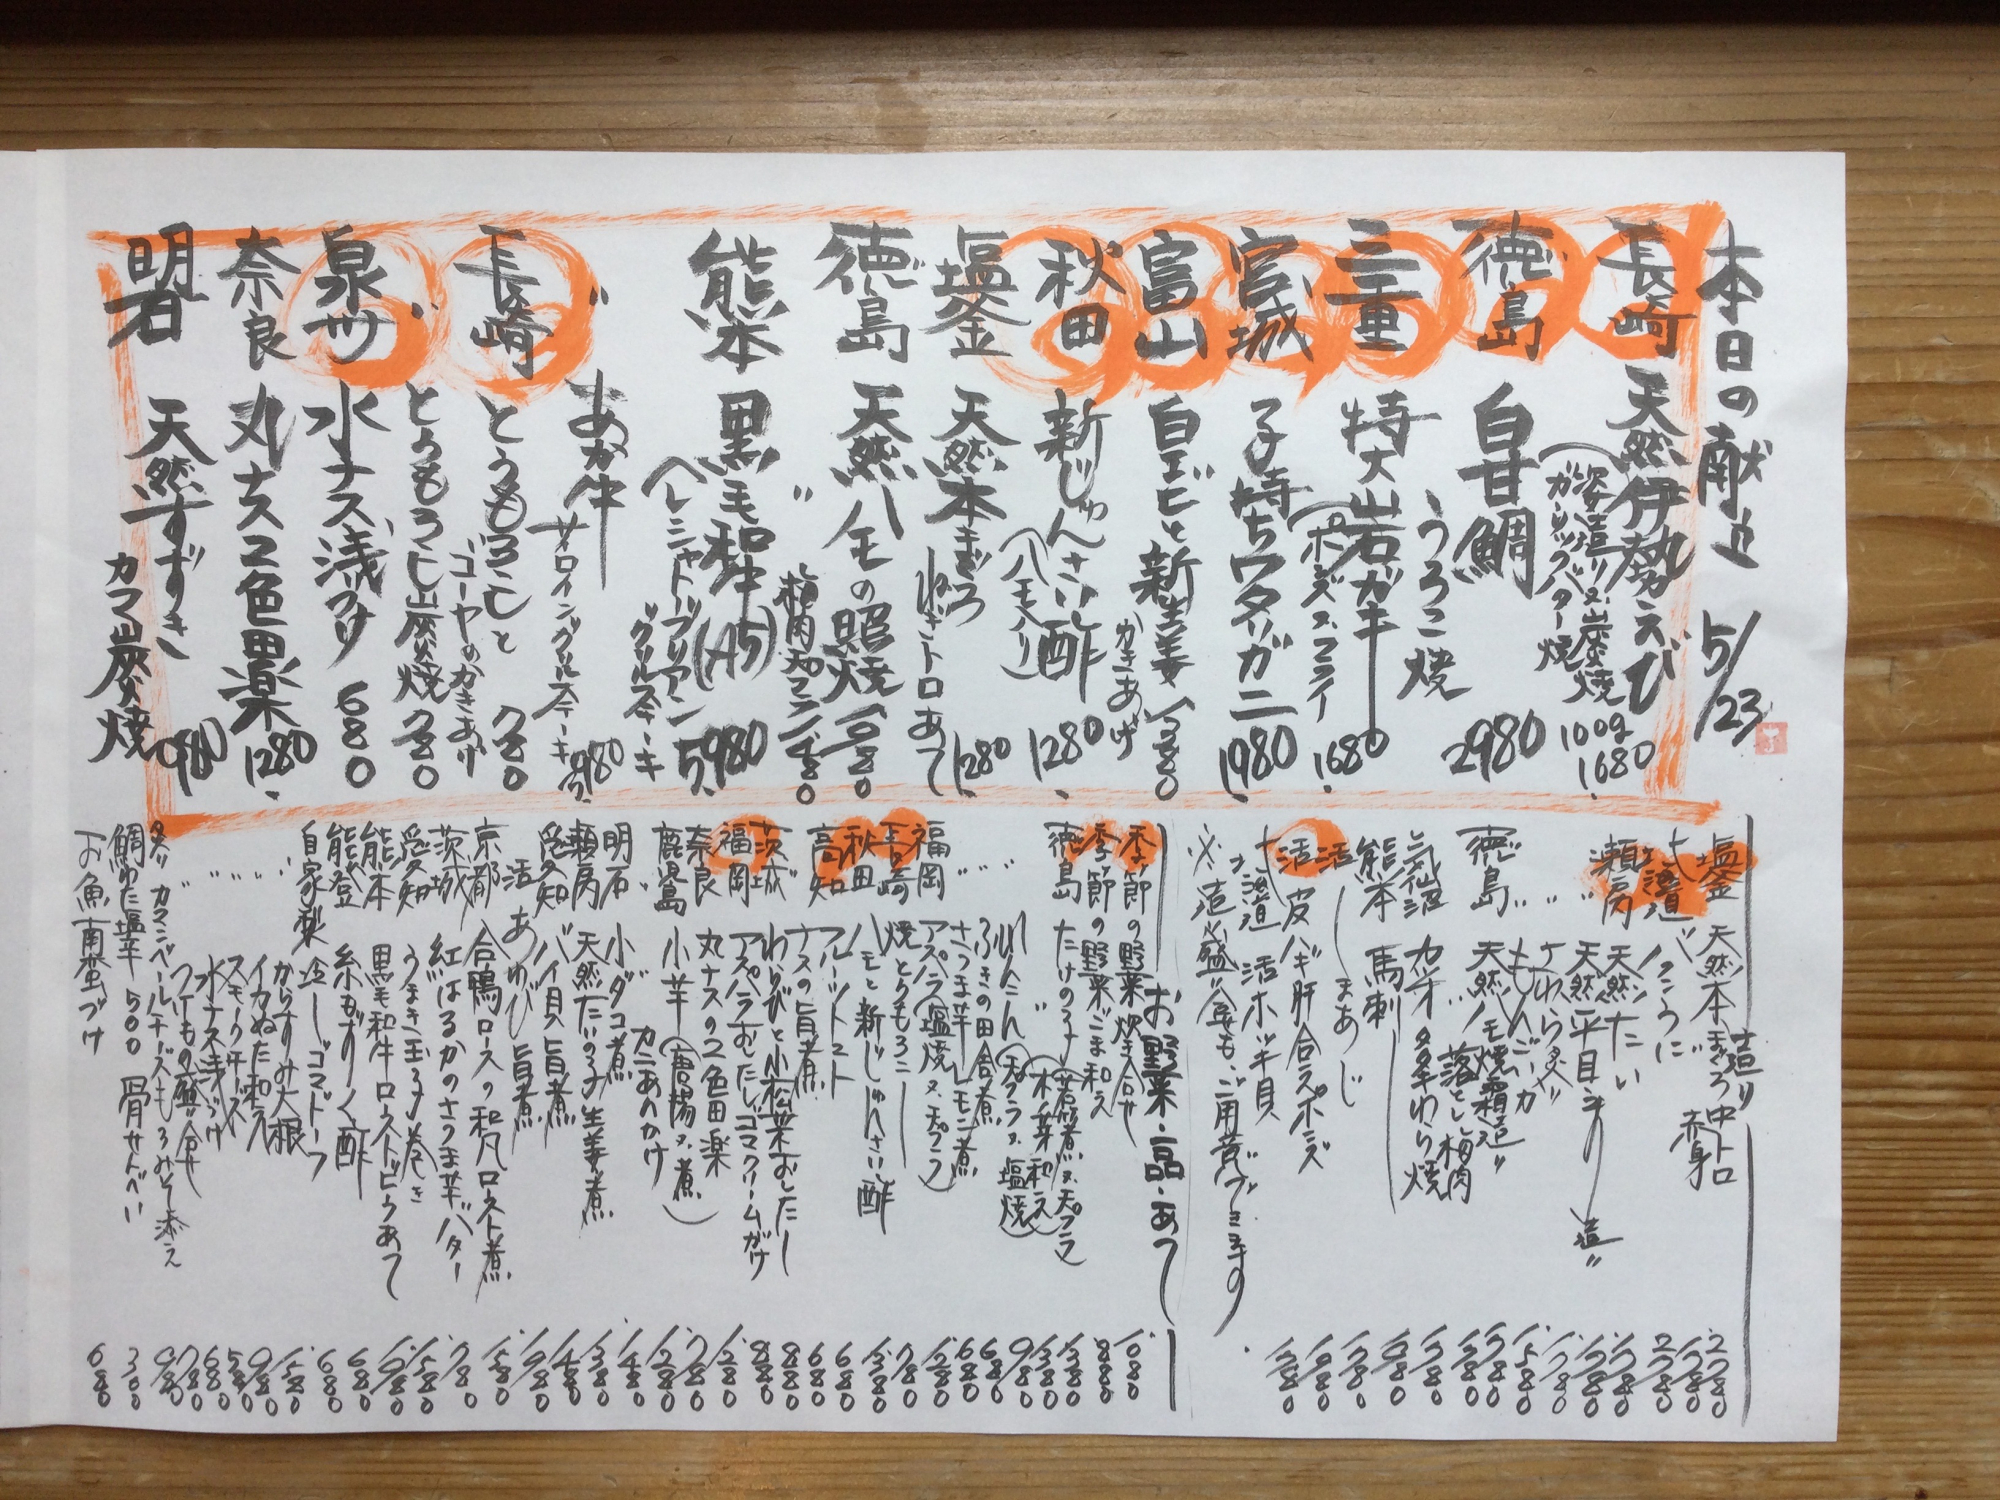 本日の献立 5/23
長崎 天然伊勢えび
(姿造り又は炭焼
ガーリックバター焼
100g 1680
徳島 白甘鯛 2980
うろこ焼
三重 特大岩ガキ 1680
(ポンズ又フライ
宮城 子持ちワタリガニ 1980
富山 白エビと新生姜 1380
かきあげ
秋田 新じゅんさい酢 1280
(ハモ入り)
塩釜 天然本まぐろ 1280
ねぎトロあて
徳島 天然ハモの照焼 1680
〃 梅肉天プラ 1480
熊本 黒毛和牛(A5) 5980
(ヘレシャトーブリアン
グリルステーキ
〃 あか牛
サーロイングリルステーキ
長崎 とうもろこしと 780
ゴーヤのかきあげ
〃 とうもろこし炭焼 780
泉州 水ナス浅づけ 680
奈良 丸ナス2色田楽 1280
明石 天然すずき 980
カマ炭焼
造り
塩釜 天然本まぐろ中トロ 2780
〃 赤身 1780
北海道 バフンうに 2780
瀬戸内 天然たい 1780
〃 天然平目 造り 1780
〃 さわら炙り 1780
〃 もんごいか 1580
徳島 天然ハモ焼霜造り 1780
〃 落とし梅肉
気仙沼 カツオタタキわら焼
熊本 馬刺
活 しまあじ
活 皮ハギ肝合えポンズ
北海道 活ホッキ貝
※造り盛り合せも、ご用意できます
お野菜・一品・あて
季節の野菜炊き合せ 1080
季節の野菜ごま和え 880
徳島 たけのこ(若竹煮又天プラ 1380
〃 (木の芽和え 1380
れんこん(天プラ又塩焼)
〃 ふきの田舎煮
〃 さつま芋レモン煮
福岡 アスパラ(塩焼又天プラ)
長崎 焼とうもろこし
秋田 ハモと新じゅんさい酢
高知 フルーツトマト
〃 ナスの旨煮
茨城 わらびと小松菜おしたし
福岡 アスパラおしたしゴマクリームがけ
奈良 丸ナスの2色田楽
鹿児島 小芋(唐揚又煮)
〃 カニあんかけ
明石 小ダコ煮
瀬戸内 天然たいの子生姜煮
愛知 バイ貝旨煮
活 あわび旨煮
京都 合鴨ロースの和風ロースト煮
茨城 紅はるかのさつま芋バター
愛知 うまき玉子巻き
熊本 黒毛和牛ローストビーフあて
能登 糸もずく酢
自家製 冷しゴマドーフ
〃 からすみ大根
〃 イカぬた和え
〃 スモークチーズ
〃 水ナス浅づけ
〃 つけもの盛り合せ
炙りカマンベールチーズもろみそ添え
鯛わた塩辛 500 骨せんべい 300
お魚南蛮づけ 680